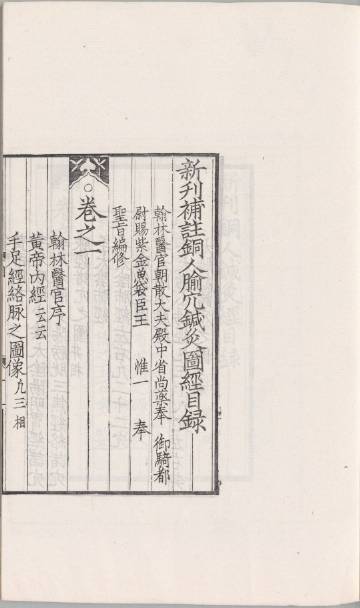 新刋補註銅人腧穴鍼灸圖經目録
翰林醫官朝散大夫殿中省尚藥奉 御騎都
尉賜紫金魚袋臣王 惟一 奉
聖旨編修
卷之一
翰林醫官序
黃帝內經云云
手足經絡脉之圖像凢三相